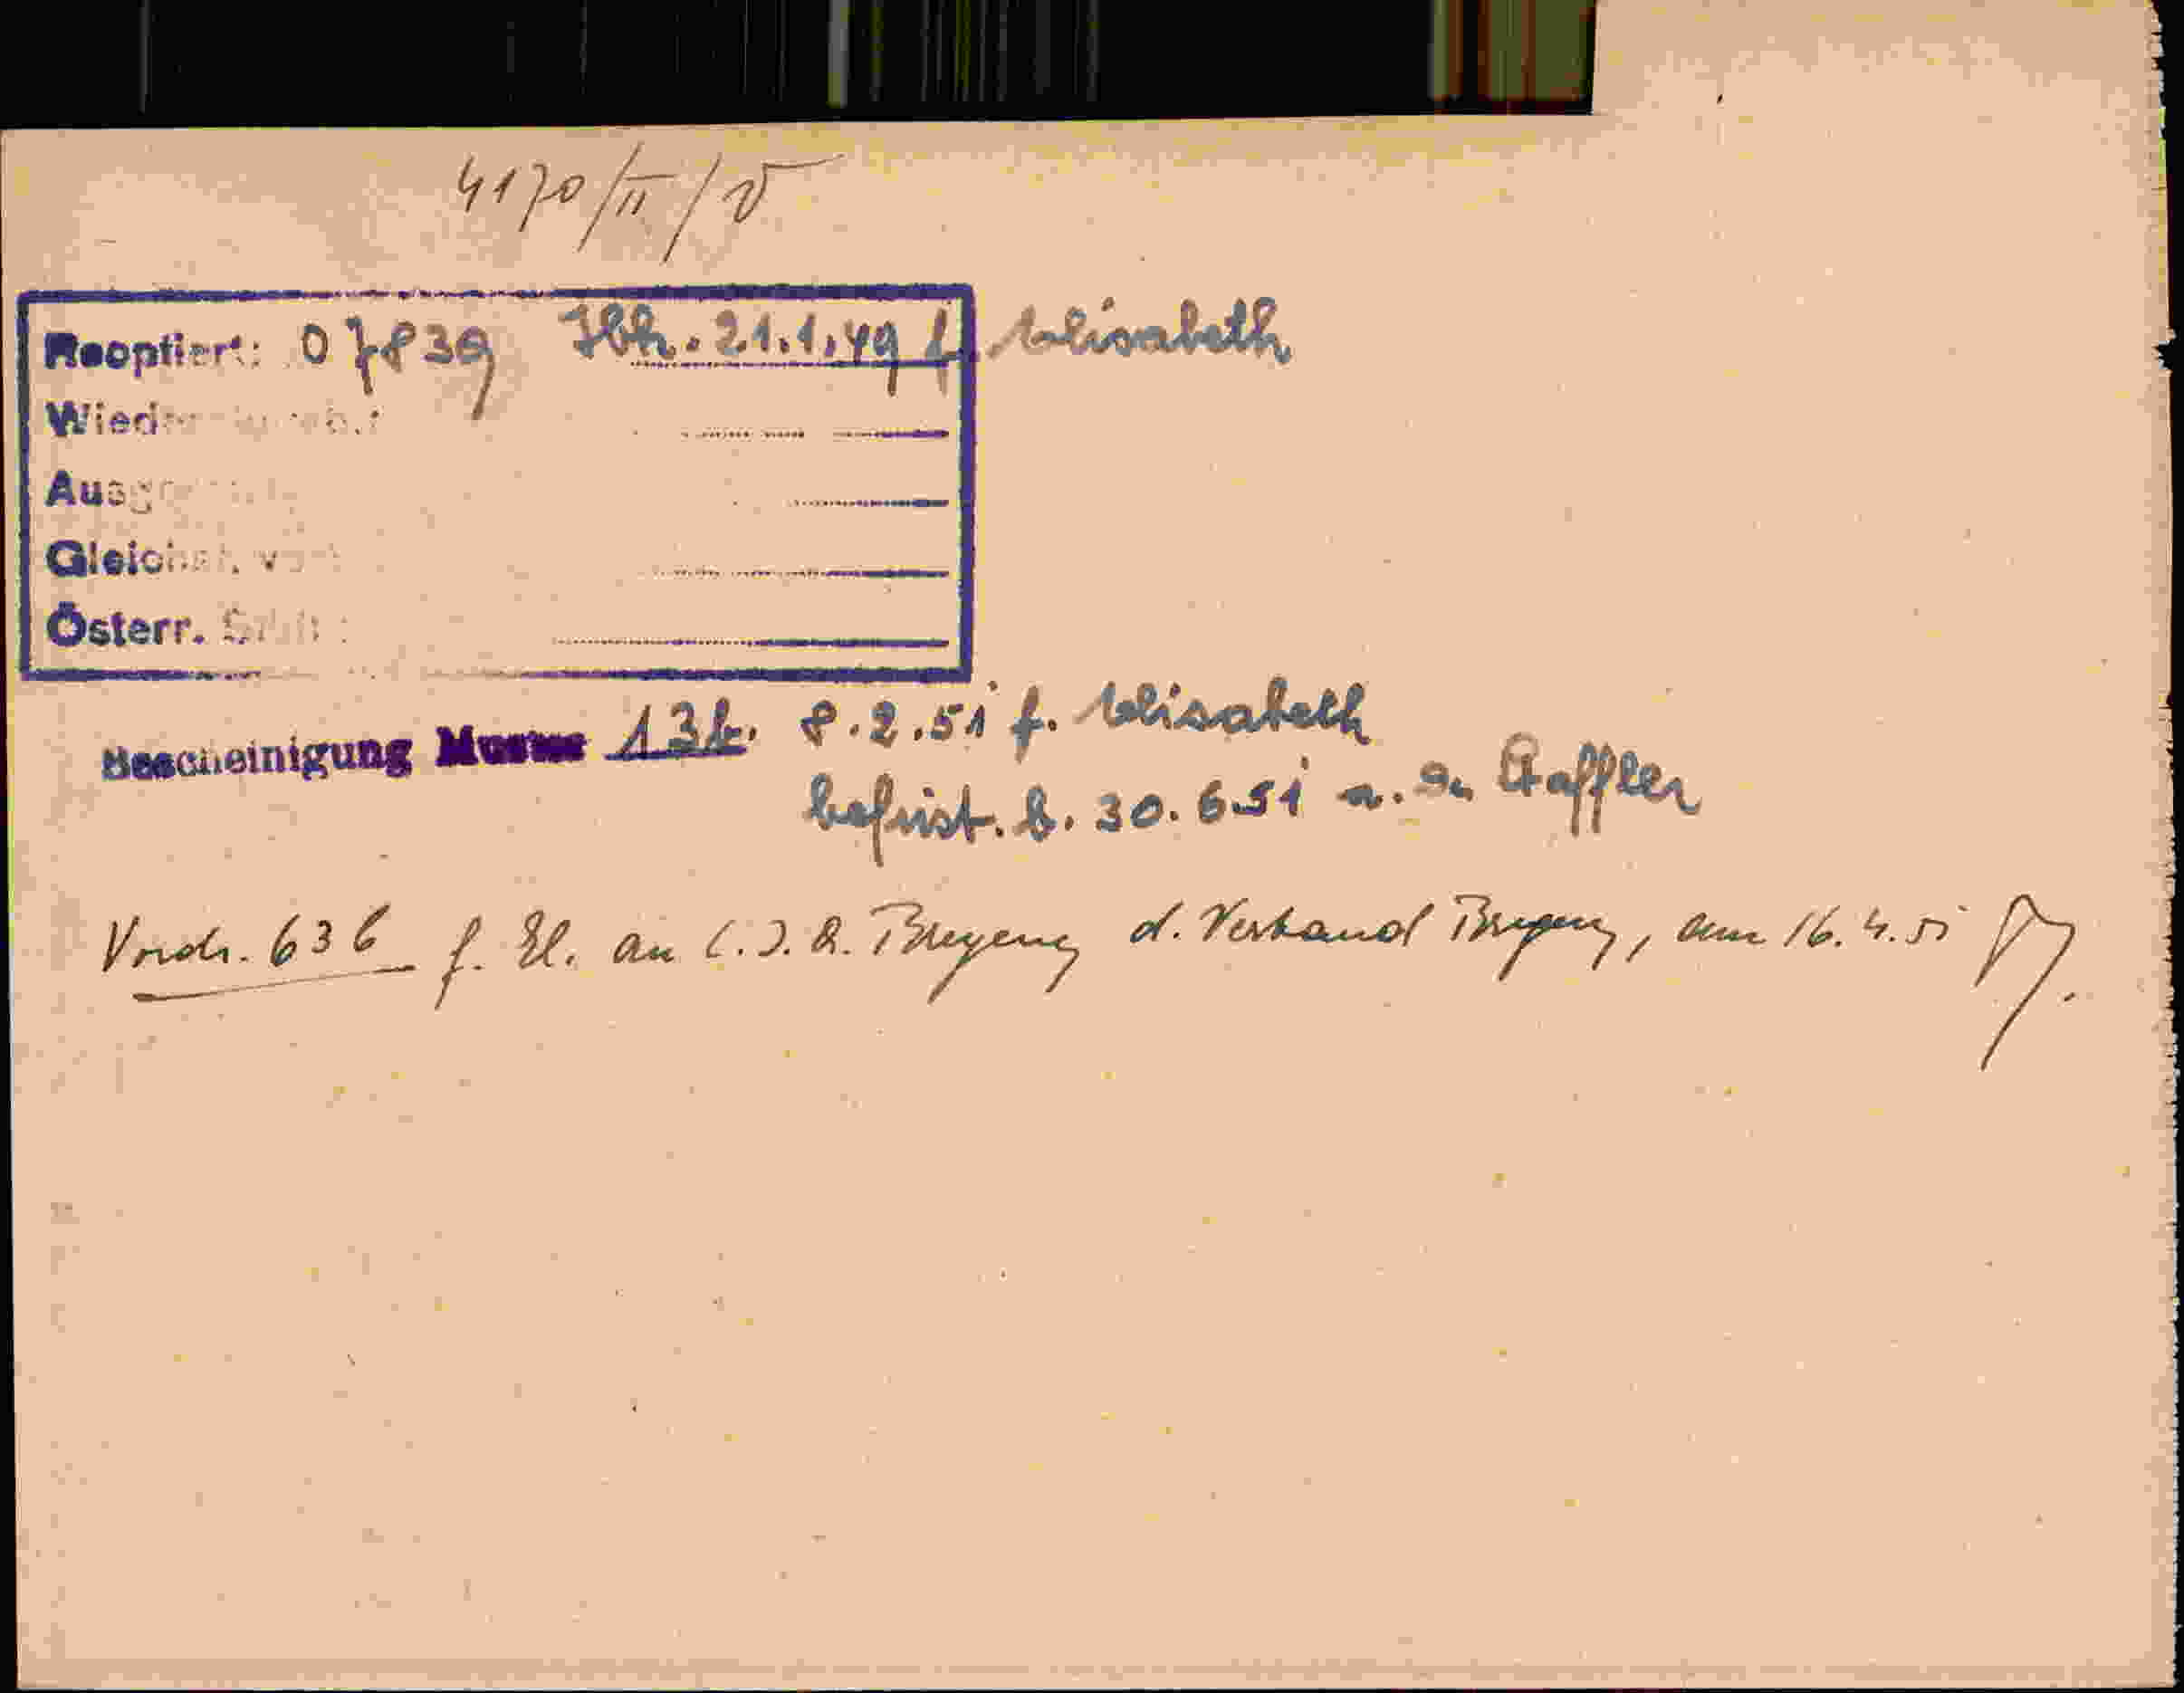 4170/II/V
Reoptiert: 07839 Ibk. 21.1.49 f. Elisabeth
Österr.
Bescheinigung Muster 13b. 8.2.51 f. Elisabeth
befrist. b. 30.6.51 Gaffler
Vordr. 636 f. El. an Bregenz d. Verband Bregenz, am 16.4.51